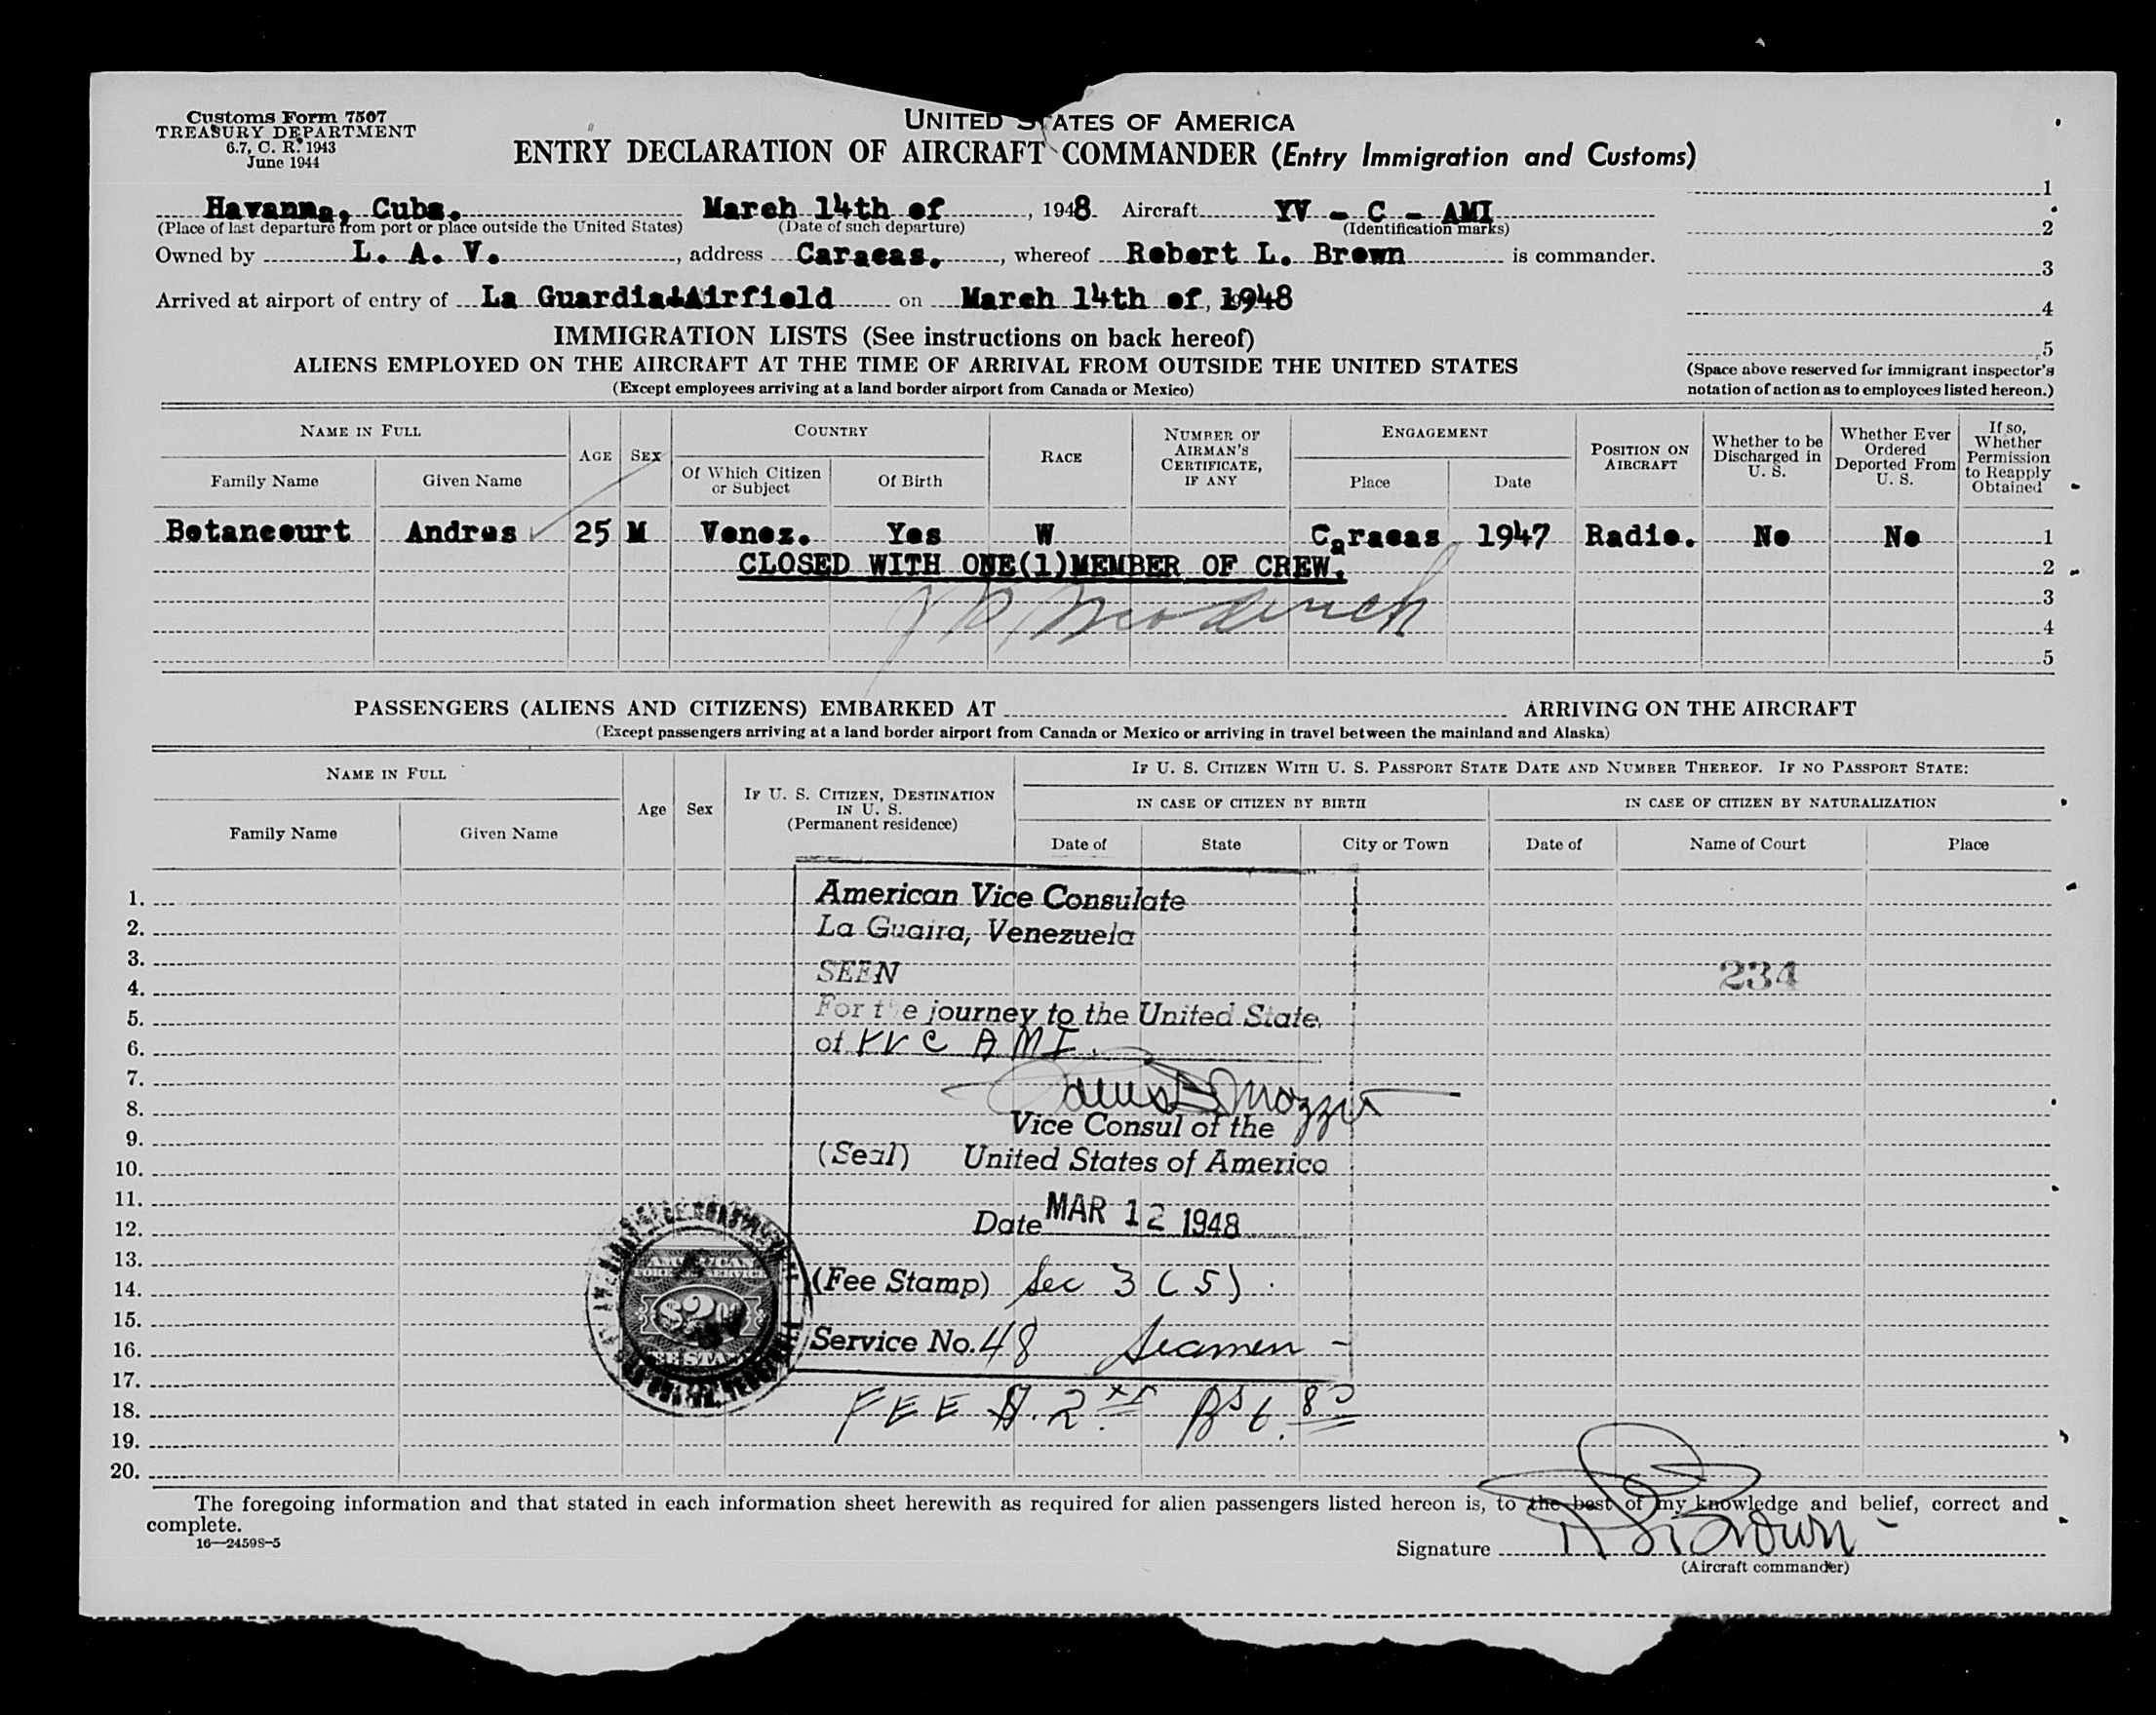 Customs Form 7507
TREASURY DEPARTMENT
6.7, C. R. 1943
June 1944
UNITED STATES OF AMERICA
ENTRY DECLARATION OF AIRCRAFT COMMANDER (Entry Immigration and Customs)
Havanna, Cuba. March 14th of, 1948. Aircraft YV - C - AMI
(Place of last departure from port or place outside the United States) (Date of such departure) (Identification marks)
Owned by L. A. V., address Caracas., whereof Robert L. Brown is commander.
Arrived at airport of entry of La Guardia Airfield on March 14th of, 1948
1
2
3
4
5
(Space above reserved for immigrant inspector's
notation of action as to employees listed hereon.)
IMMIGRATION LISTS (See instructions on back hereof)
ALIENS EMPLOYED ON THE AIRCRAFT AT THE TIME OF ARRIVAL FROM OUTSIDE THE UNITED STATES
(Except employees arriving at a land border airport from Canada or Mexico)
NAME IN FULL
Family Name Given Name
AGE SEX
COUNTRY
Of Which Citizen or Subject Of Birth
RACE
NUMBER OF AIRMAN'S CERTIFICATE, IF ANY
ENGAGEMENT
Place Date
POSITION ON AIRCRAFT
Whether to be Discharged in U. S.
Whether Ever Ordered Deported From U. S.
If so, Whether Permission to Reapply Obtained
Betancourt Andres 25 M Venez. Yes W Caracas 1947 Radio. No No 1
CLOSED WITH ONE(1)MEMBER OF CREW. 2
3
4
5
PASSENGERS (ALIENS AND CITIZENS) EMBARKED AT ARRIVING ON THE AIRCRAFT
(Except passengers arriving at a land border airport from Canada or Mexico or arriving in travel between the mainland and Alaska)
NAME IN FULL
Family Name Given Name
Age Sex
IF U. S. CITIZEN, DESTINATION IN U. S.
(Permanent residence)
IF U. S. CITIZEN WITH U. S. PASSPORT STATE DATE AND NUMBER THEREOF. IF NO PASSPORT STATE:
IN CASE OF CITIZEN BY BIRTH IN CASE OF CITIZEN BY NATURALIZATION
Date of State City or Town Date of Name of Court Place
1.
2.
3.
4.
5.
6.
7.
8.
9.
10.
11.
12.
13.
14.
15.
16.
17.
18.
19.
20.
American Vice Consulate
La Guaira, Venezuela
SEEN
For the journey to the United State
of YV C AMI.
Vice Consul of the
(Seal) United States of America
Date MAR 12 1948
(Fee Stamp) Sec 3 (5).
Service No. 48 Seamen -
FEE $.2.xx Bs 6.80
234
AMERICAN
FOREIGN SERVICE
$2.00
FEE STAMP
The foregoing information and that stated in each information sheet herewith as required for alien passengers listed hereon is, to the best of my knowledge and belief, correct and
complete.
16—24598-5
Signature R L Brown
(Aircraft commander)